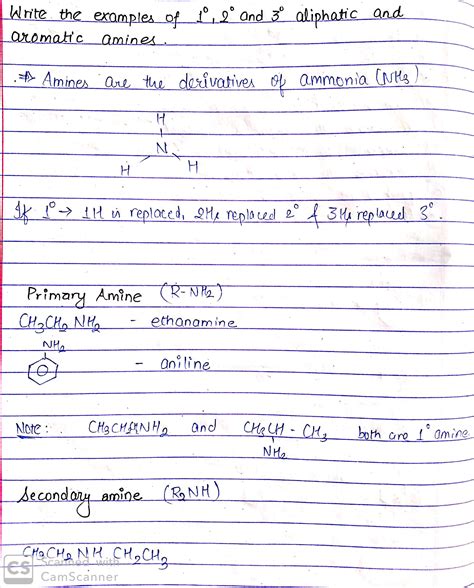 Write the examples of 1°, 2° and 3° aliphatic and
aromatic amines.
⇒ Amines are the derivatives of ammonia (NH3)
H
N
H H
If 1° → 1H is replaced, 2Hs replaced 2° & 3Hs replaced 3°.
Primary Amine (R-NH2)
CH3CH2 NH2 - ethanamine
NH2
- aniline
Note: . and CH3CH - CH3 both are 1° amine
NH2
Secondary amine (R2NH)
CH3CH2 NH CH2CH3
CS Scanned with
CamScanner